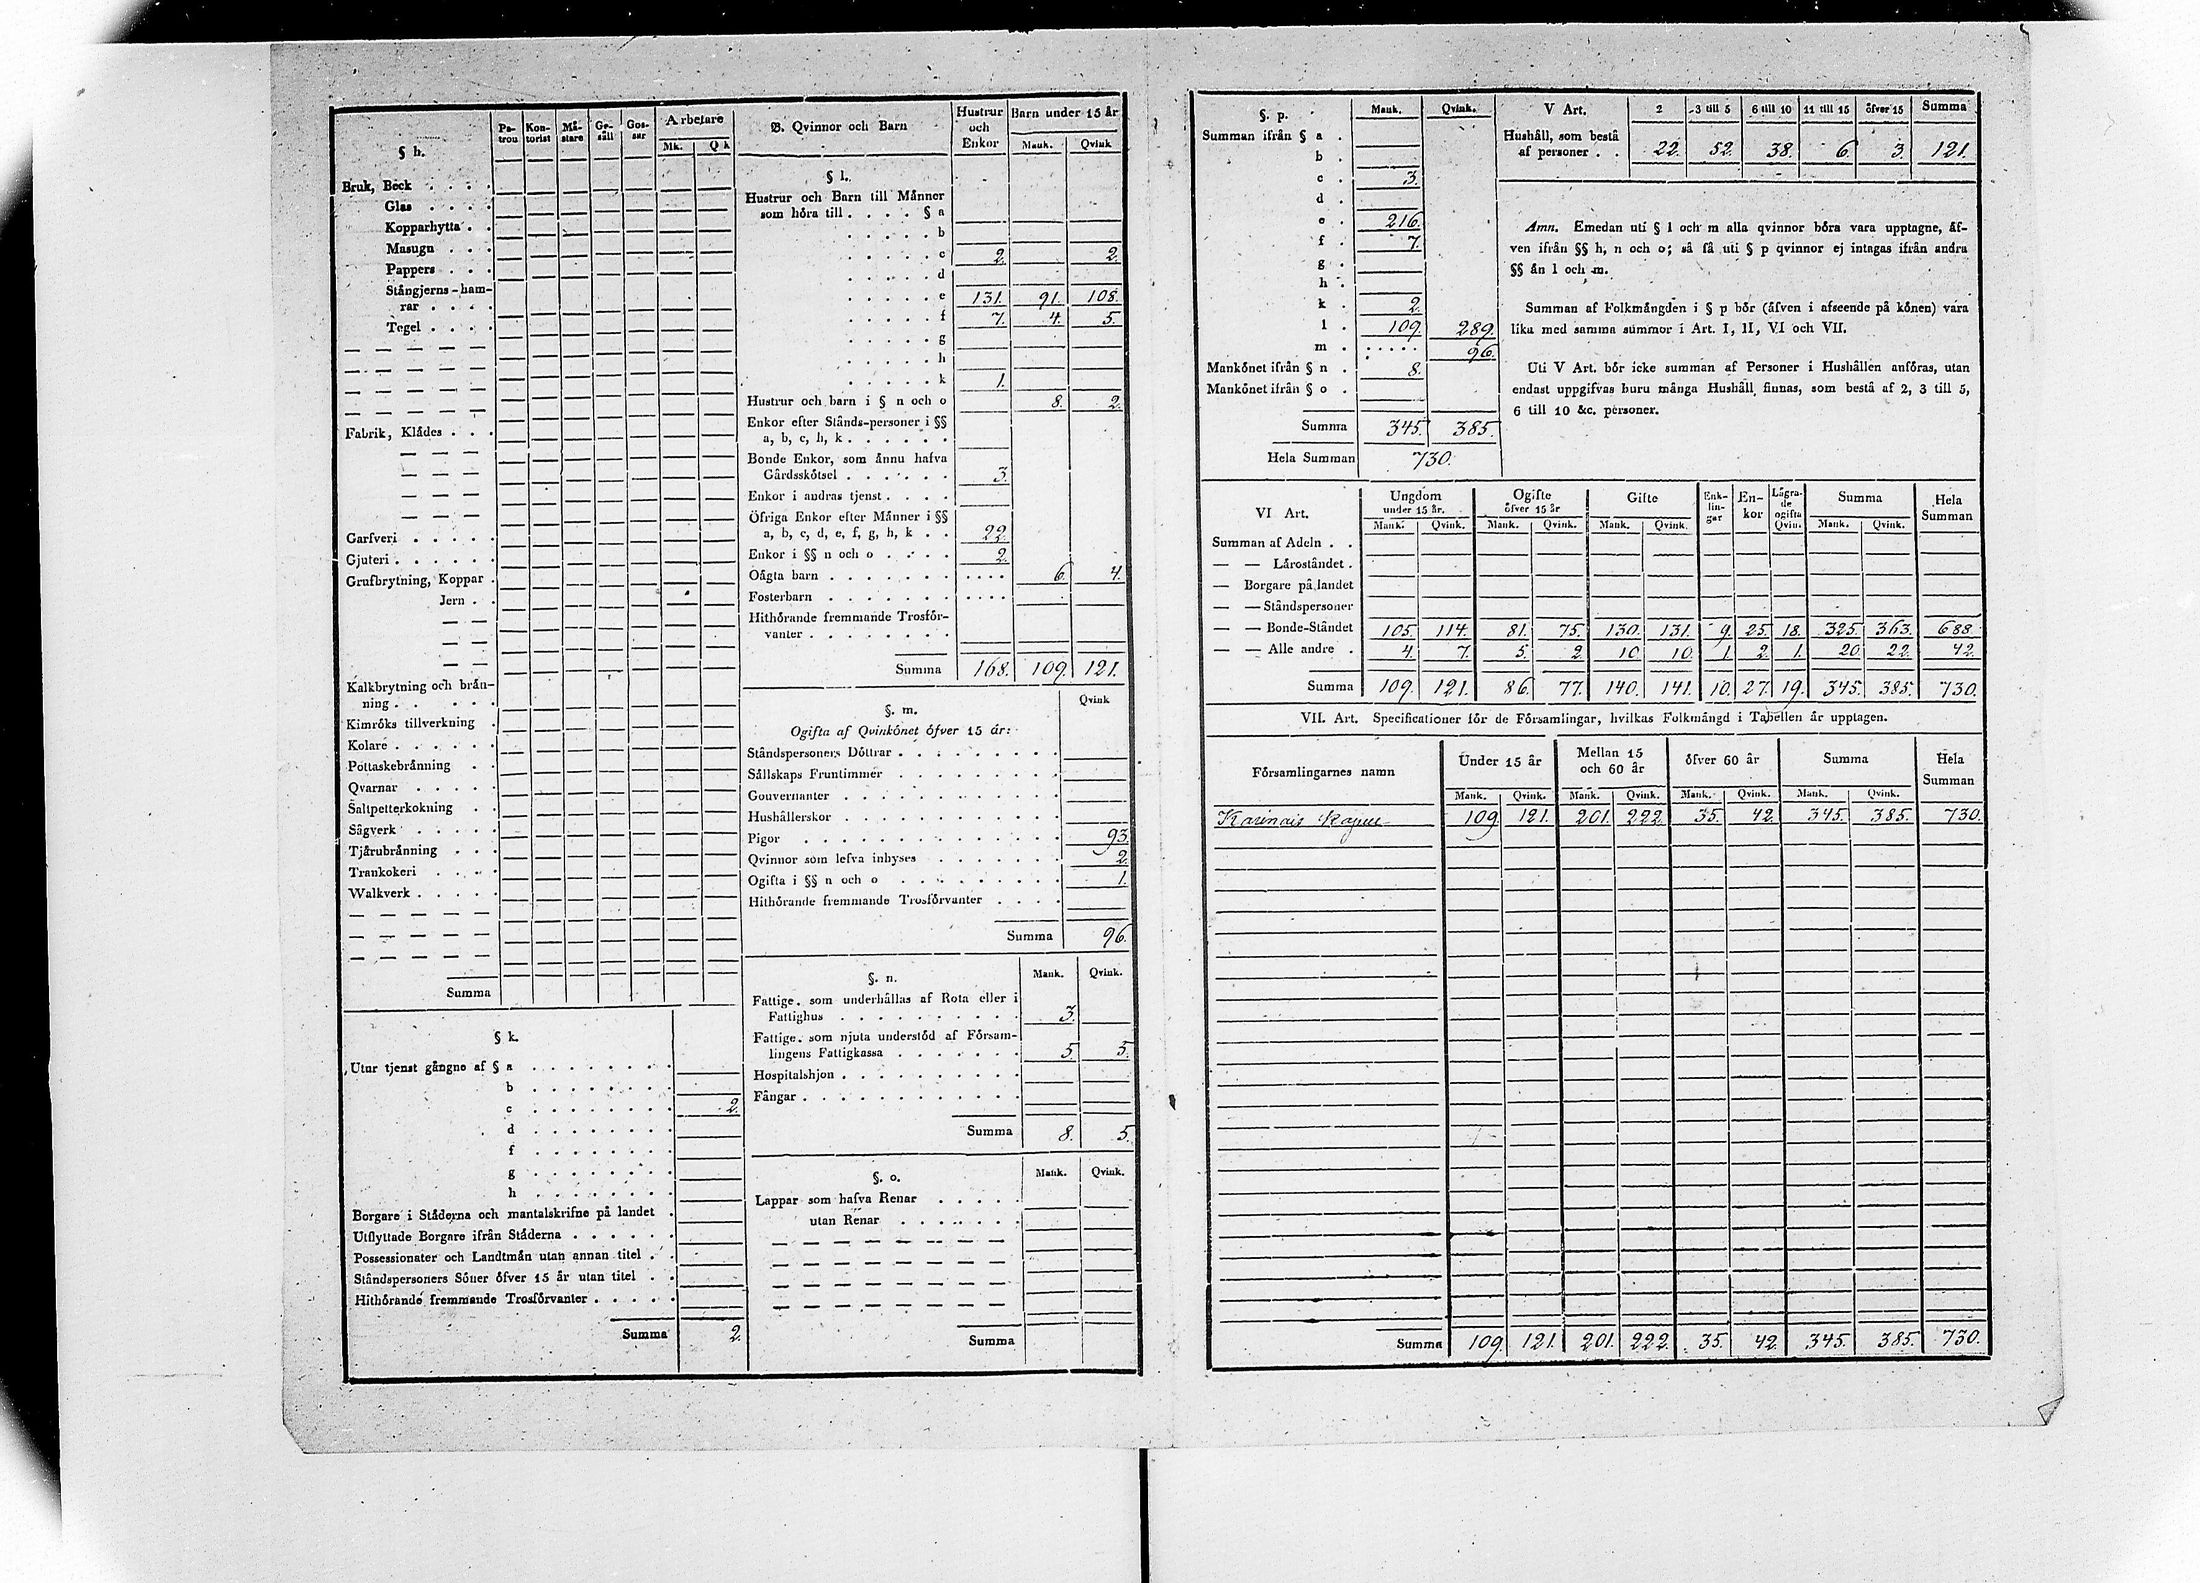 § h.
Pa-tron Kon-torist Må-stare Ge-säll Gos-sar Arbetare
Mk. Qk
Bruk, Beck . . . .
Glas . . . .
Kopparhytta . .
Masugn . . .
Pappers . . .
Stångjerns-ham-
rar . . . .
Tegel . . . .
Fabrik, Klådes . . .
Garfveri . . . . .
Gjuteri . . . . .
Grufbrytning, Koppar .
Jern . .
Kalkbrytning och brån-
ning . . . . .
Kimröks tillverkning .
Kolare . . . . .
Pottaskebränning . .
Qvarnar . . . . .
Saltpetterkokning . .
Sågverk . . . . .
Tjårubrånning . . .
Trankokeri . . . .
Walkverk . . . . .
Summa
§ k.
Utur tjenst gångne af § a . . . . . . . .
b . . . . . . . .
c . . . . . . . . 2.
d . . . . . . . .
f . . . . . . . .
g . . . . . . . .
h . . . . . . . .
Borgare i Ståderna och mantalskrifne på landet .
Utflyttade Borgare ifrån Ståderna . . . . . .
Possessionater och Landtmån utan annan titel . .
Ståndspersoners Söner öfver 15 år utan titel . .
Hithörande fremmande Trosförvanter . . . . .
Summa 2.
B. Qvinnor och Barn
Hustrur och Enkor Barn under 15 år
Mank. Qvink
§ l.
Hustrur och Barn till Månner
som höra till . . . . § a
. . . . . b
. . . . . c 2. 2.
. . . . . d
. . . . . e 131. 91. 108.
. . . . . f 7. 4. 5.
. . . . . g
. . . . . h
. . . . . k 1.
Hustrur och barn i § n och o 8. 2.
Enkor efter Stånds-personer i §§
a, b, c, h, k . . . . . .
Bonde Enkor, som ånnu hafva
Gårdsskötsel . . . . . . 3.
Enkor i andras tjenst . . . .
Öfriga Enkor efter Månner i §§
a, b, c, d, e, f, g, h, k . . 22.
Enkor i §§ n och o . . . . 2.
Oågta barn . . . . . . . . . . . 6. 4.
Fosterbarn . . . . . . . . . . .
Hithörande fremmande Trosför-
vanter . . . . . . . .
Summa 168. 109. 121.
§. m.
Qvink
Ogifta af Qvinkönet öfver 15 år:
Ståndspersoners Döttrar . . . . . . . . .
Sållskaps Fruntimmer . . . . . . . . .
Gouvernanter . . . . . . . . . . . .
Hushållerskor . . . . . . . . . . . .
Pigor . . . . . . . . . . . . . 93.
Qvinnor som lefva inhyses . . . . . . . 2.
Ogifta i §§ n och o . . . . . . . . . 1.
Hithörande fremmande Trosförvanter . . . .
Summa 96.
§. n.
Mank. Qvink.
Fattige, som underhållas af Rota eller i
Fattighus . . . . . . . . . . 3.
Fattige, som njuta understöd af Försam-
lingens Fattigkassa . . . . . . . 5. 5.
Hospitalshjon . . . . . . . . . .
Fångar . . . . . . . . . . . .
Summa 8. 5.
§. o.
Mank. Qvink.
Lappar som hafva Renar . . . . .
utan Renar . . . . . .
Summa
§. p.
Mank. Qvink.
Summan ifrån § a .
b .
c . 3.
d .
e . 216.
f . 7.
g .
h .
k . 2.
l . 109. 289.
m . . . . . . 96.
Mankönet ifrån § n . 8.
Mankönet ifrån § o .
Summa 345. 385.
Hela Summan 730.
V Art. 2 3 till 5 6 till 10 11 till 15 öfver 15 Summa
Hushåll, som bestå
af personer . . 22. 52. 38. 6. 3. 121.
Amn. Emedan uti § l och m alla qvinnor böra vara upptagne, äf-
ven ifrån §§ h, n och o; så få uti § p qvinnor ej intagas ifrån andra
§§ än l och m.
Summan af Folkmångden i § p bör (äfven i afseende på könen) vara
lika med samma summor i Art. I, II, VI och VII.
Uti V Art. bör icke summan af Personer i Hushållen anföras, utan
endast uppgifvas huru många Hushåll finnas, som bestå af 2, 3 till 5,
6 till 10 &c. personer.
VI Art.
Ungdom under 15 år. Ogifte öfver 15 år Gifte Enk-lin-gar En-kor Lägra-de ogifta Qvin. Summa Hela Summan
Mank. Qvink. Mank. Qvink. Mank. Qvink. Mank. Qvink.
Summan af Adeln . .
— — Låroståndet .
— Borgare på landet
— — Ståndspersoner
— — Bonde-Ståndet 105. 114. 81. 75. 130. 131. 9. 25. 18. 325. 363. 688.
— — Alle andre . 4. 7. 5. 2. 10. 10. 1. 2. 1. 20. 22. 42.
Summa 109. 121. 86. 77. 140. 141. 10. 27. 19. 345. 385. 730.
VII. Art. Specificationer för de Församlingar, hvilkas Folkmångd i Tabellen år upptagen.
Församlingarnes namn
Under 15 år Mellan 15 och 60 år öfver 60 år Summa Hela Summan
Mank. Qvink. Mank. Qvink. Mank. Qvink. Mank. Qvink.
Karinais 109. 121. 201. 222. 35. 42. 345. 385. 730.
Summa 109. 121. 201. 222. 35. 42. 345. 385. 730.